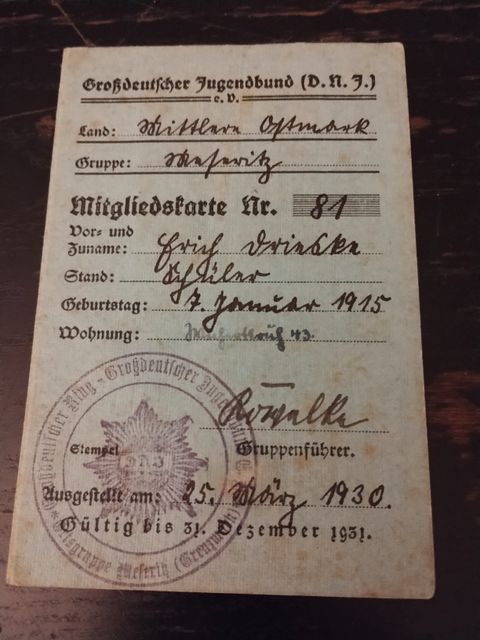 Großdeutscher Jugendbund (D.N.J.)
e.V.
Land: Mittlere Ostmark
Gruppe: Meseritz
Mitgliedskarte Nr. 81
Vor- und
Zuname: Erich Drieske
Stand: Schüler
Geburtstag: 7. Januar 1915
Wohnung: 43.
Großdeutscher Ring - Großdeutscher Jugendbund
D.N.J.
Ortsgruppe Meseritz (Grenzmark)
Stempel
Gruppenführer.
Ausgestellt am: 25. März 1930.
Gültig bis 31. Dezember 1931.